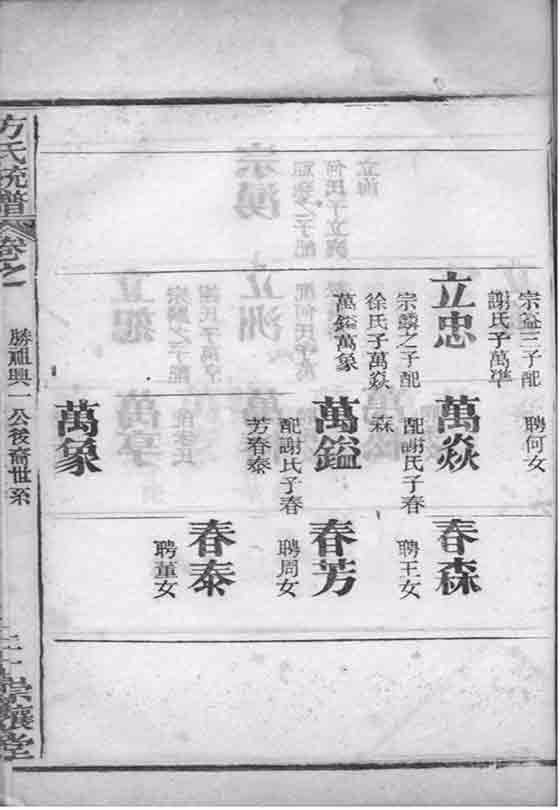 宗鎰三子配
謝氏子萬準
立忠
宗麟之子配
徐氏子萬焱
萬鎰萬象
聘何女
萬焱
配謝氏子春
森
萬鎰
配謝氏子春
芳春泰
萬象
春森
聘王女
春芳
聘周女
春泰
聘董女
方氏統譜
卷之一
勝祖興一公後裔世系
二十
崇讓堂